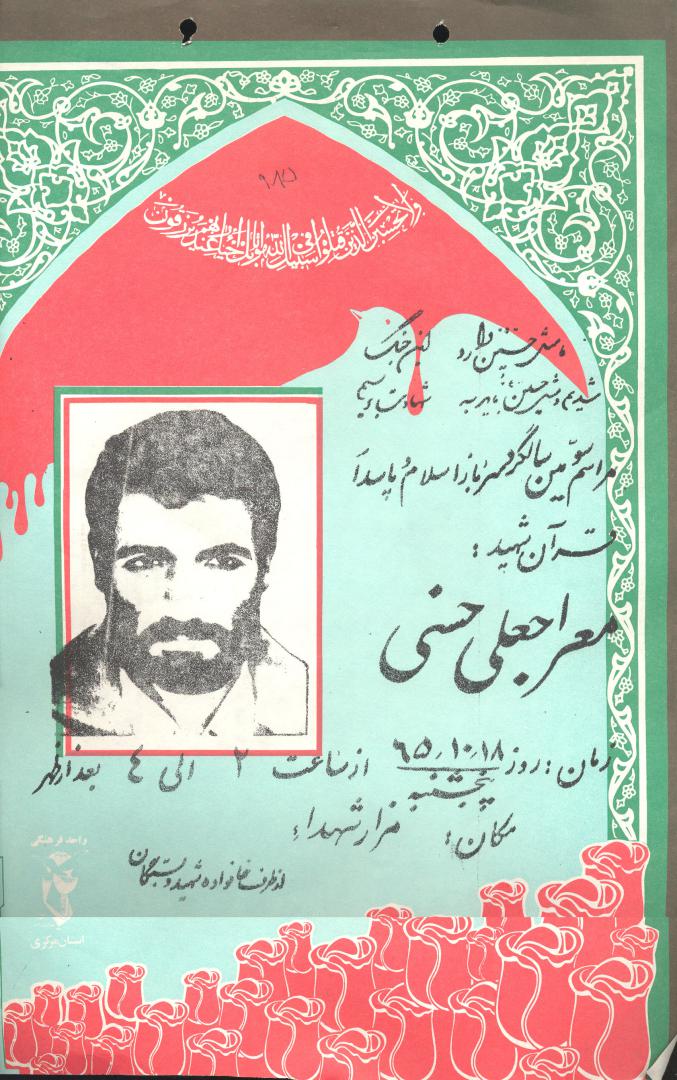 ۹۸۲۱
ولا تحسبن الذین قتلوا فی سبیل الله امواتا بل احیاء عند ربهم یرزقون
ما مثل حسین وارد این جنگ
شدیم و مثل حسین باید به شهادت برسیم
مراسم سومین سالگرد سرباز اسلام و پاسدار
قرآن شهید:
معراجعلی حسنی
زمان: روز پنجشنبه ۶۵٫۱۰٫۱۸ از ساعت ۲ الی ۴ بعد از ظهر
مکان: مزار شهداء
از طرف خانواده شهید و بستگان
واحد فرهنگی
استان مرکزی